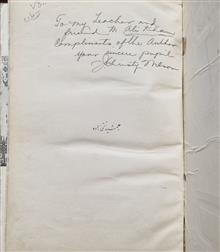 To my Teacher and
friend M. Ali Khan
Compliments of the Author
Your sincere pupil
J Christy Wilson